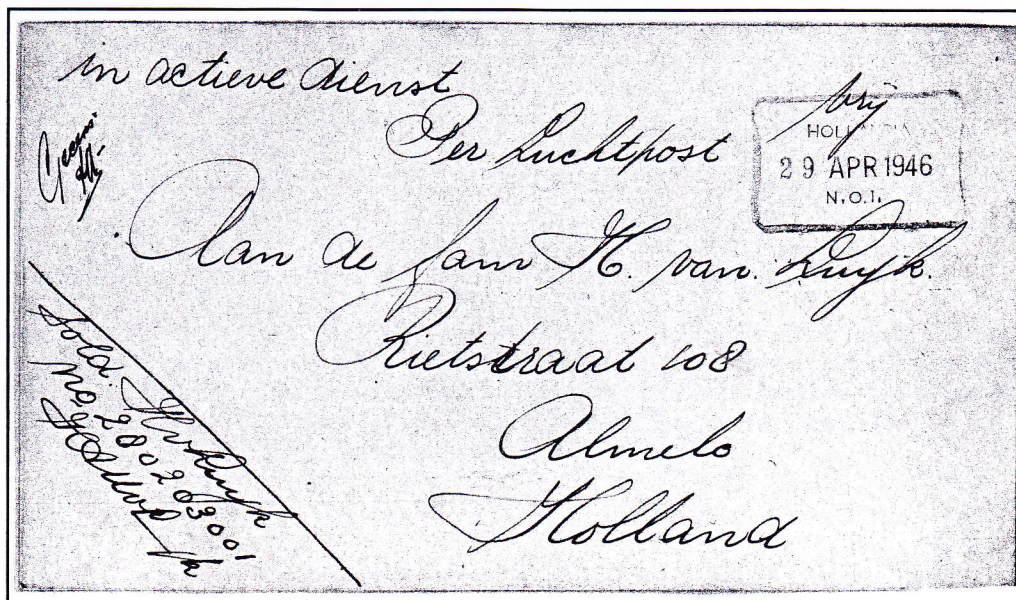 in actieve dienst
Per Luchtpost
vrij
HOLLANDIA
29 APR 1946
N.O.I.
Aan de fam H. van. Duyk.
Rietstraat 108
Almelo
Holland
Sold. H v Duyk
no. 280209001